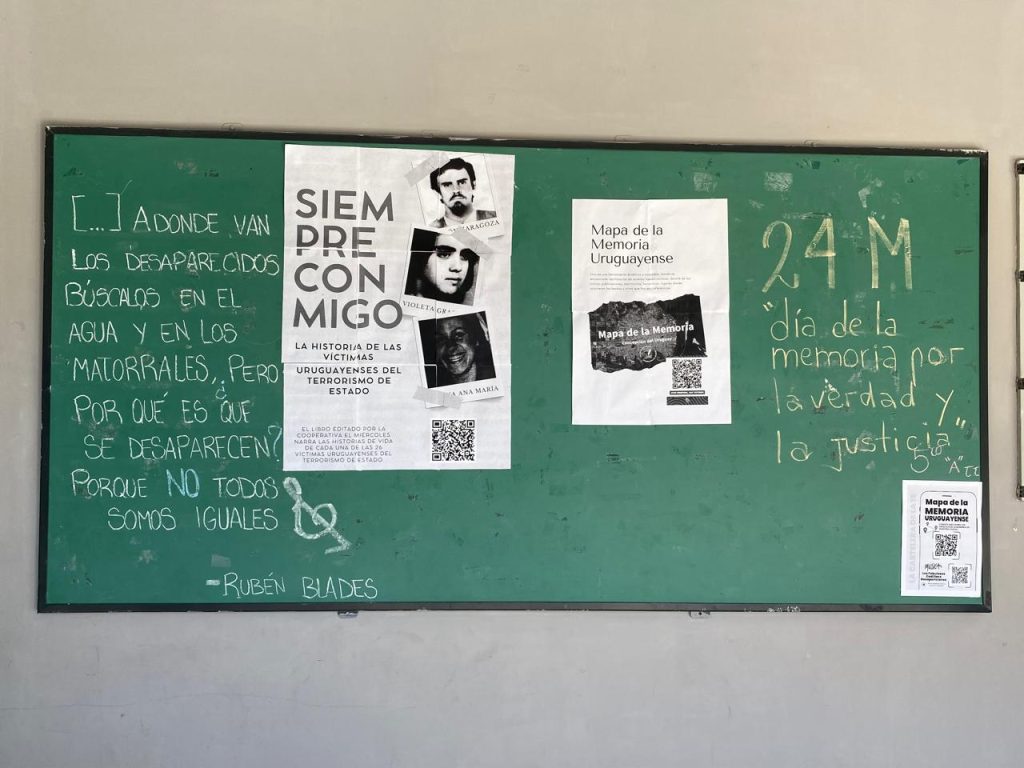 [...] A DONDE VAN
LOS DESAPARECIDOS
BÚSCALOS EN EL
AGUA Y EN LOS
MATORRALES, ¿PERO
POR QUÉ ES QUE
SE DESAPARECEN?
PORQUE NO TODOS
SOMOS IGUALES
-RUBÉN BLADES
SIEM
PRE
CON
MIGO
ZARAGOZA
VIOLETA
ANA MARÍA
LA HISTORIA DE LAS
VÍCTIMAS
URUGUAYENSES DEL
TERRORISMO DE
ESTADO
EL LIBRO EDITADO POR LA
COOPERATIVA EL MIÉRCOLES
NARRA LAS HISTORIAS DE VIDA
DE CADA UNA DE LAS 26
VÍCTIMAS URUGUAYENSES DEL
TERRORISMO DE ESTADO
Mapa de la
Memoria
Uruguayense
Mapa de la Memoria
24 M
"día de la
memoria por
la verdad y
la justicia"
5to "A" TT
Mapa de la
MEMORIA
URUGUAYENSE